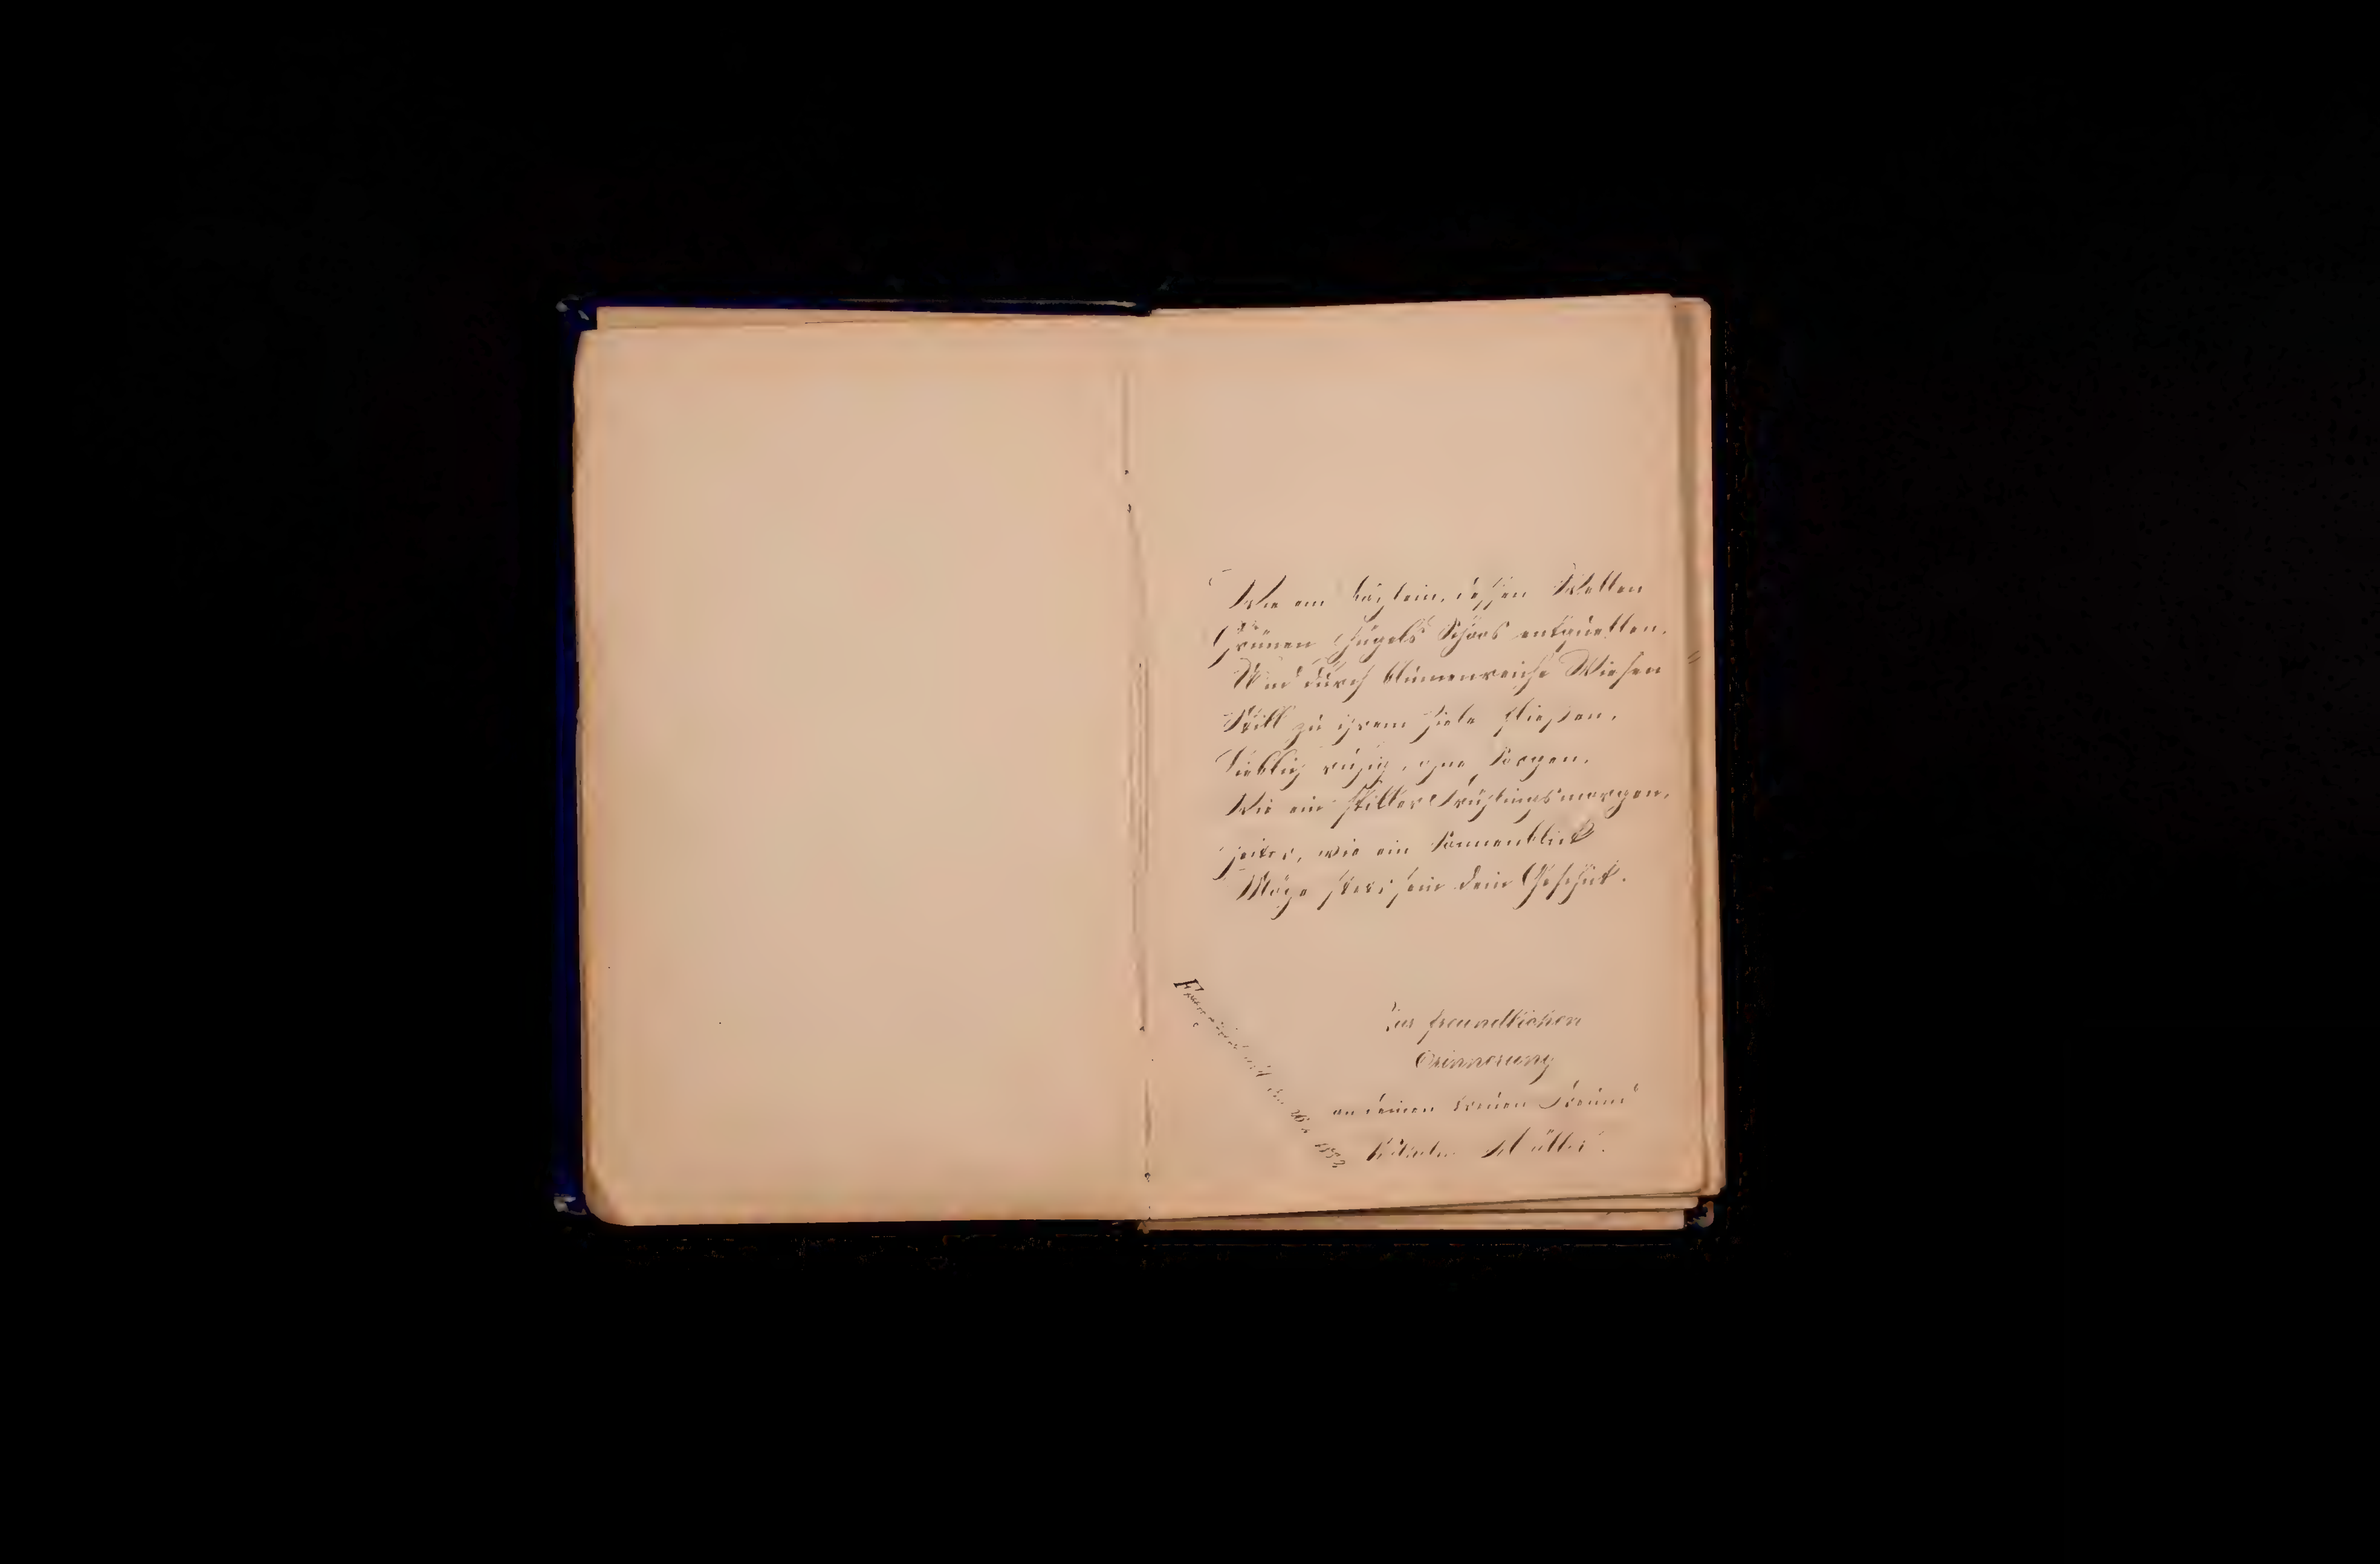 Wie ein Bächlein, dessen Wellen
Grünen Hügels Schoos entquellen,
Und durch blumenreiche Wiesen
Still zu ihrem Ziele fließen,
Lieblich ruhig, ohne Sorgen,
Wie ein stiller Frühlingsmorgen,
Heiter, wie ein Sonnenblick
Möge stets sein dein Geschick.
Zur freundlichen
Erinnerung
an deinen treuen Freund
Müller.
den 26